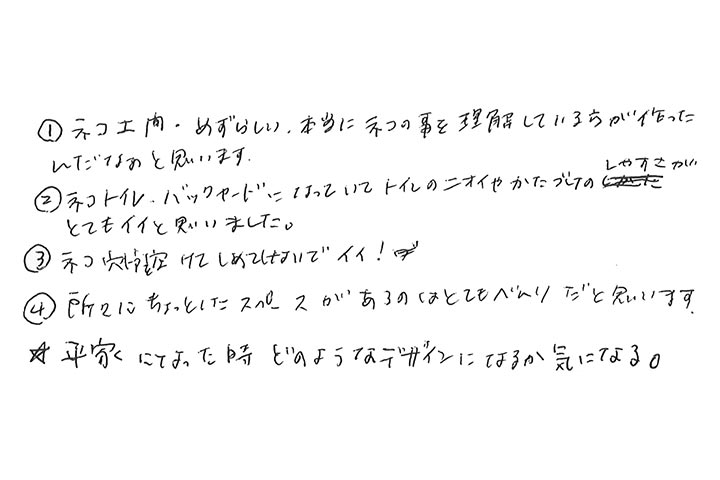 ① ネコ工間・めずらしい、本当にネコの事を理解している方が作った
んだなぁと思います。
② ネコトイレ・バックヤードになっていてトイレのニオイやかたづけのしやすさがい
とてもイイと思いました。
③ ネコ 空けてしめてしないでイイ!
④ 所々にちょっとしたスペースがあるのはとてもべんりだと思います。
☆ 平家になった時どのようなデザインになるか気になる。